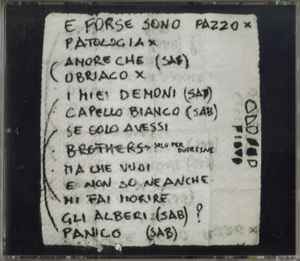 E FORSE SONO PAZZO x
PATOLOGIA x
AMORE CHE (SAB)
UBRIACO x
I MIEI DEMONI (SAB)
CAPELLO BIANCO (SAB)
SE SOLO AVESSI
BROTHERS > SOLO PER
MA CHE VUOI
E NON SO NEANCHE
MI FAI MORIRE
GLI ALBERI (SAB) ?
PANICO (SAB)